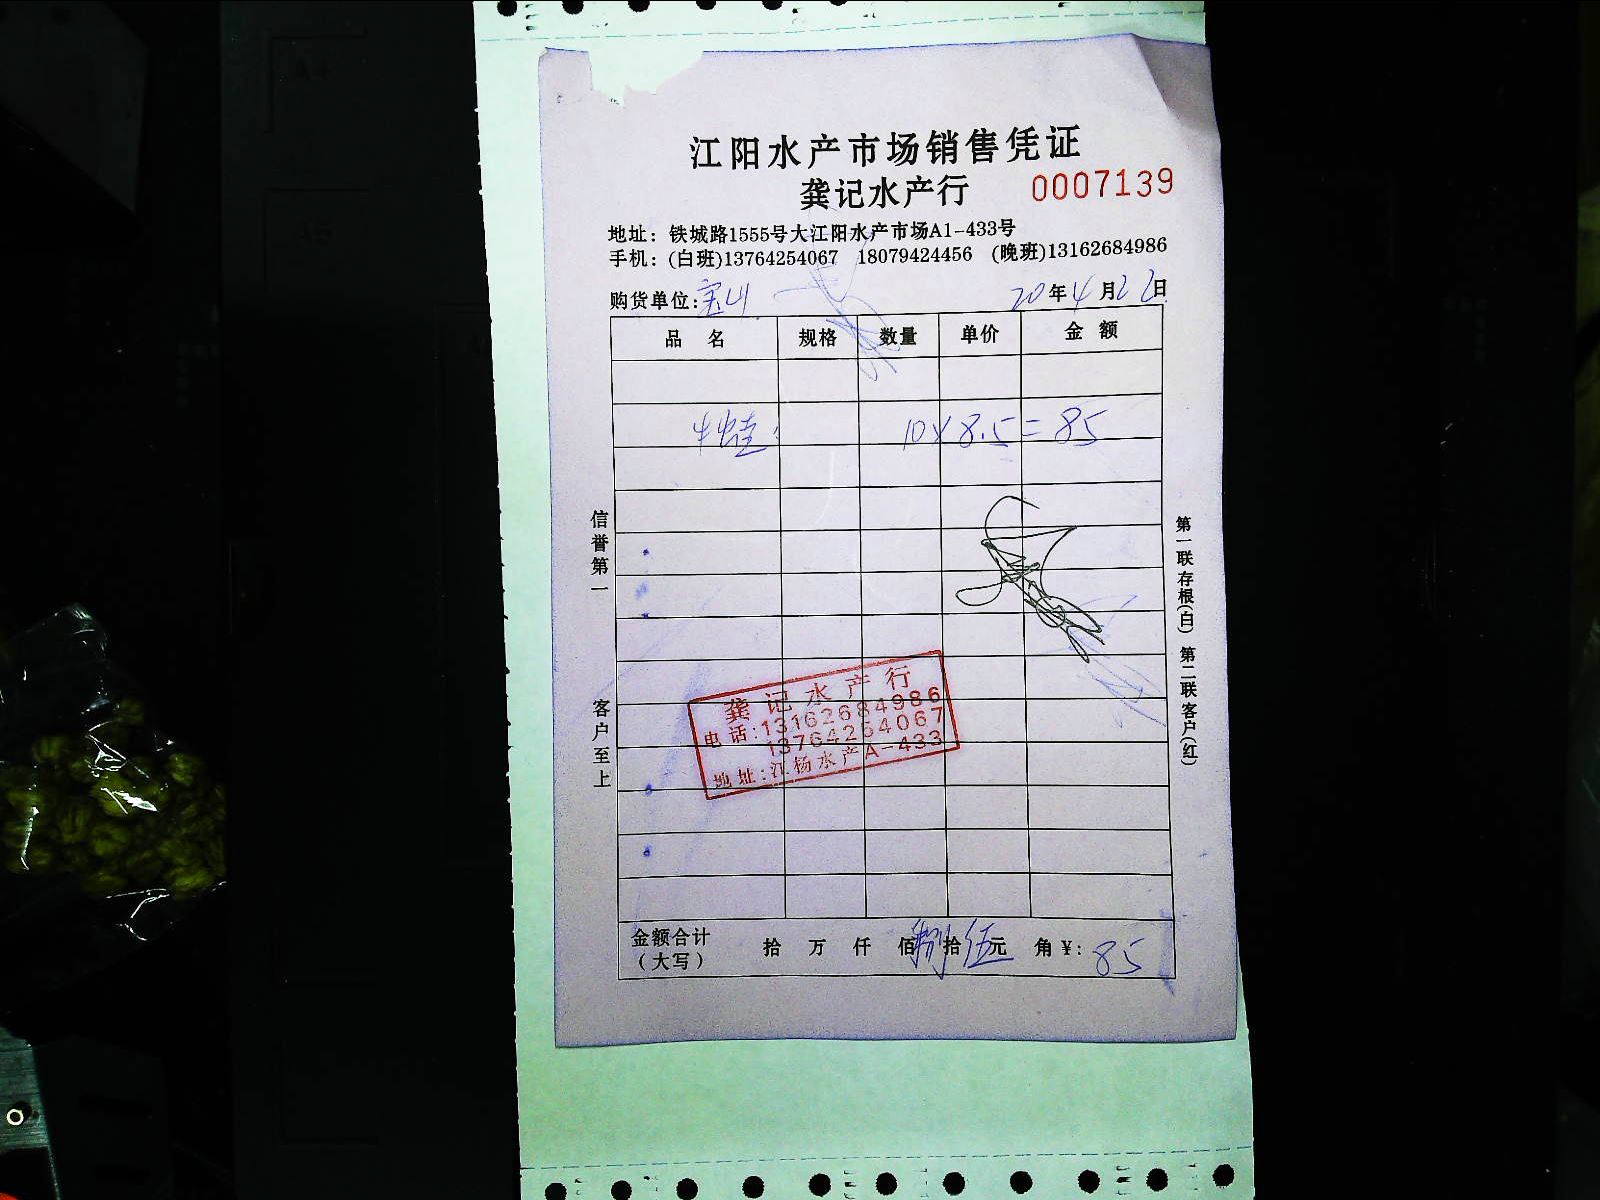 江阳水产市场销售凭证
龚记水产行 0007139
地址：铁城路1555号大江阳水产市场A1-433号
手机：(白班)13764254067 18079424456 (晚班)13162684986
购货单位:宝山 20年4月22日
品名 规格 数量 单价 金额
牛蛙 10×8.5=85
信誉第一 客户至上
第一联存根(白) 第二联客户(红)
龚记水产行
电话:13162684986
13764254067
地址:江杨水产A-433
金额合计（大写） 拾 万 仟 佰 捌拾伍元 角 ¥: 85